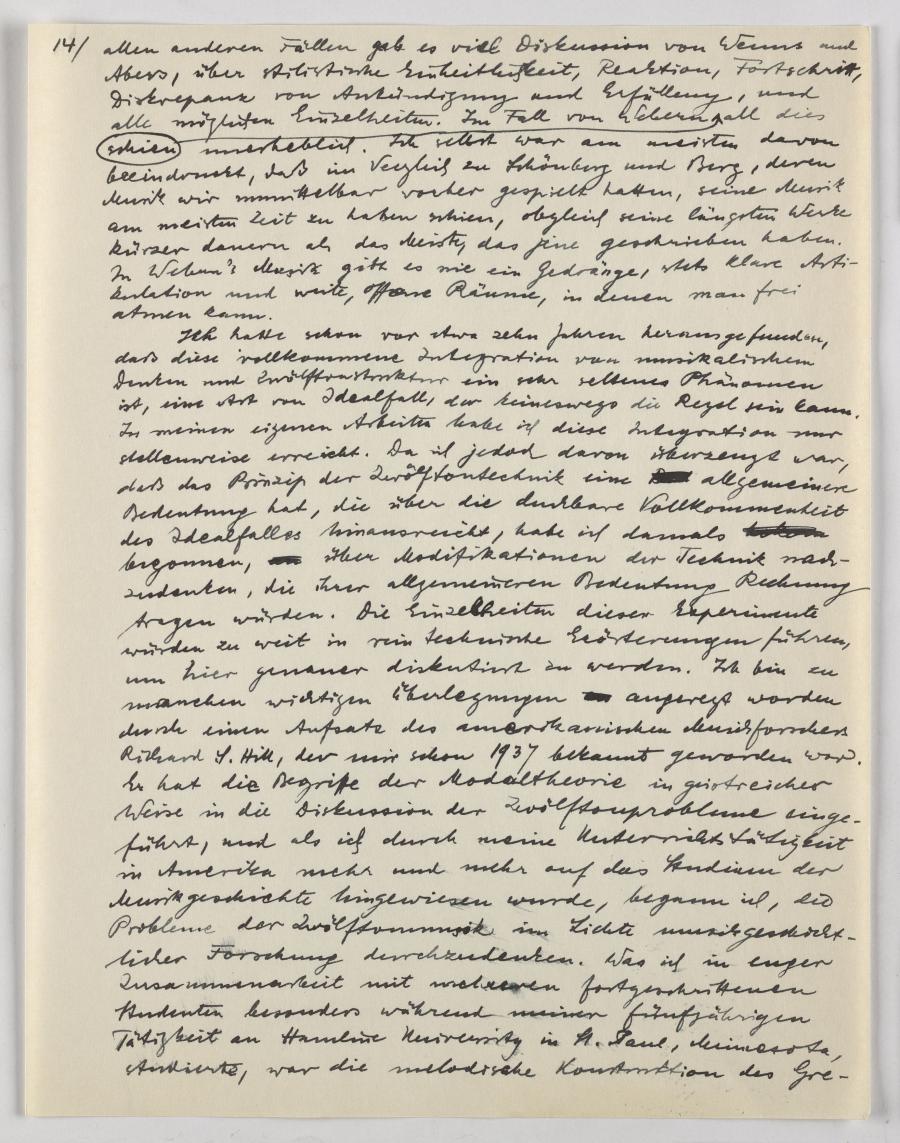 14/ allen anderen Fällen gab es viel Diskussion von Wenns und
Abers, über stilistische Einheitlichkeit, Reaktion, Fortschritt,
Diskrepanz von Ankündigung und Erfüllung, und
alle möglichen Einzelheiten. Im Fall von Webern all dies
schien unerheblich. Ich selbst war am meisten davon
beeindruckt, daß im Vergleich zu Schönberg und Berg, deren
Musik wir unmittelbar vorher gespielt hatten, seine Musik
am meisten Zeit zu haben schien, obgleich seine längsten Werke
kürzer dauern als das Meiste, das jene geschrieben haben.
In Webern's Musik gibt es nie ein Gedränge, stets klare Arti-
kulation und weite, offene Räume, in denen man frei
atmen kann.
Ich hatte schon vor etwa zehn Jahren herausgefunden,
daß diese vollkommene Integration von musikalischem
Denken und Zwölftonstruktur ein sehr seltenes Phänomen
ist, eine Art von Idealfall, der keineswegs die Regel sein kann.
In meinen eigenen Arbeiten habe ich diese Integration nur
stellenweise erreicht. Da ich jedoch davon überzeugt war,
daß das Prinzip der Zwölftontechnik eine allgemeinere
Bedeutung hat, die über die denkbare Vollkommenheit
des Idealfalles hinausreicht, habe ich damals
begonnen, über Modifikationen der Technik nach-
zudenken, die ihrer allgemeineren Bedeutung Rechnung
tragen würden. Die Einzelheiten dieser Experimente
würden zu weit in rein technische Erörterungen führen,
um hier genauer diskutiert zu werden. Ich bin zu
manchen wichtigen Überlegungen angeregt worden
durch einen Aufsatz des amerikanischen Musikforschers
Richard S. Hill, der mir schon 1937 bekannt geworden war.
Er hat die Begriffe der Modaltheorie in geistreicher
Weise in die Diskussion der Zwölftonprobleme einge-
führt, und als ich durch meine Unterrichtstätigkeit
in Amerika mehr und mehr auf das Studium der
Musikgeschichte hingewiesen wurde, begann ich, die
Probleme der Zwölftonmusik im Lichte musikgeschicht-
licher Forschung durchzudenken. Was ich in enger
Zusammenarbeit mit mehreren fortgeschrittenen
Studenten besonders während meiner fünfjährigen
Tätigkeit an Hamline University in St. Paul, Minnesota,
studierte, war die melodische Konstruktion des Gre-